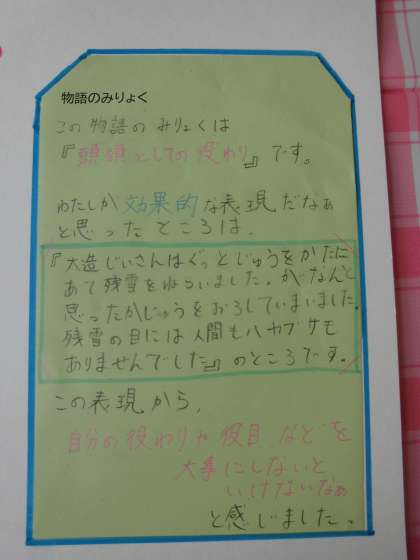 物語のみりょく
この物語のみりょくは
『頭領としての役わり』です。
わたしが効果的な表現だなぁ
と思ったところは、
『大造じいさんはぐっとじゅうをかたに
あて残雪をねらいました。が、なんと
思ったかじゅうをおろしてしまいました。
残雪の目には人間もハヤブサも
ありませんでした。』のところです。
この表現から、
自分の役わりや役目などを
大事にしないと
いけないなぁ
と感じました。